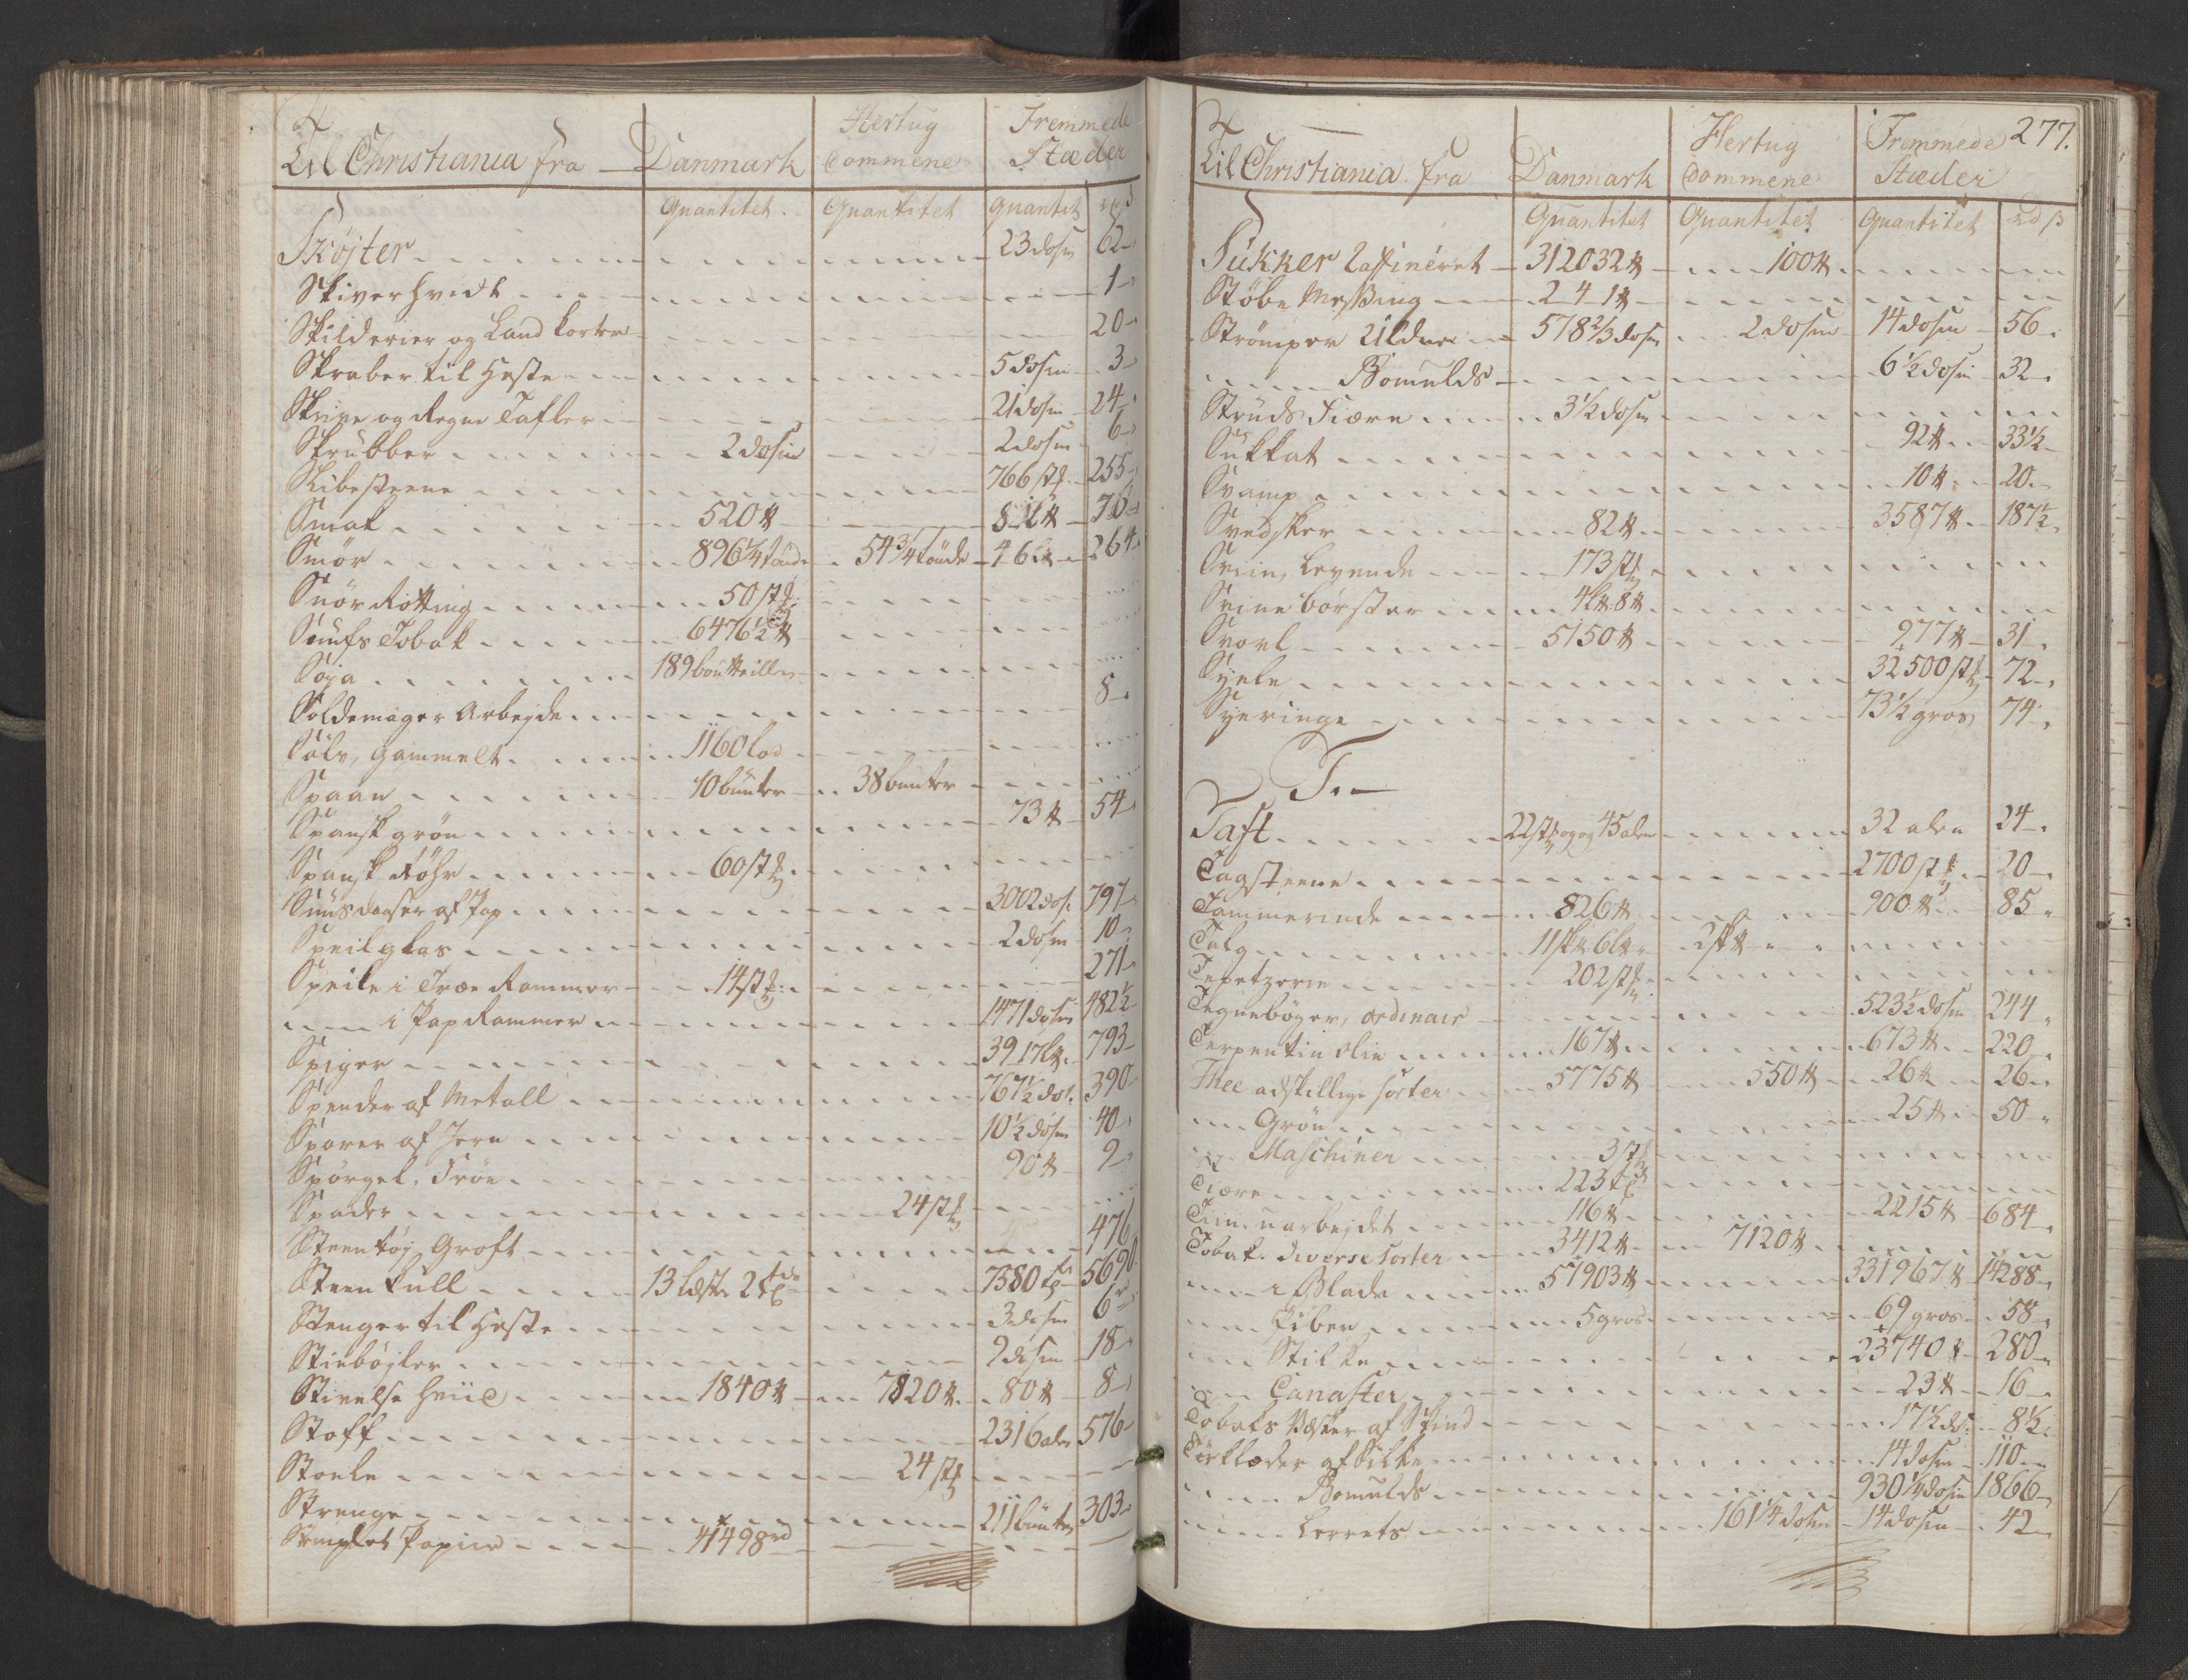 Til Christiania fra Danmark Hertug dommene Fremmede Stæder
Quantitet Quantitet Quantitet rd
Skøjter 23 dosin 62
Skiverhvidt 1
Skilderier og Landkorter 20
Skraber til Heste 5 dosin 3
Skrive og Regne Tafler 21 dosin 24
Skrubber 2 dosin 2 dosin 6
Slibesteene 766 stk 255
Smak 520 ℔
Smør 896 1/4 tönde 54 3/4 tönde 264
Snör Rotting 50 stk
Snufs Tobak 6476 1/2 ℔
Soya 189 boutteiller
Soldemager Arbejde 8
Sölv, gammelt 1160 lod
Spaan 10 bunter 38 bunter
Spansk grön 73 ℔ 54
Spansk Röhr 60 stk
Snuusdaaser af Pap 3002 dos. 797
Speilglas 2 dosin 10
Speile i Træe Rammer 14 stk 271
i Pap Rammer 1471 dosin 482 1/2
Spiger 793
Spender af Metall 767 1/2 dos. 390
Sporer af Jern 10 1/2 dosin 40
Spörgel. Fröe 90 ℔ 9
Spader 24 stk
Steentøj Groft 476
Steenkull 13 læster 2 7580 5690
Stenger til Heste 3 dosin 6
Stiebøjler 9 dosin 18
Stivelse hviid 1840 ℔ 7820 ℔ 80 ℔ 8
Stoff 2316 alen 576
Stoele 24 stk
Strenge 211 bunter 303
Stemplet Papiir 41498 rd
277.
Til Christiania fra Danmark Hertug dommene Fremmede Stæder
Quantitet Quantitet Quantitet rd ß
Sukker Raffineret 312032 ℔ 100 ℔
Støbe Messing 2_4_1 ℔
Strömper Uldne 578 2/3 dosin 2 dosin 14 dosin 56
Bomulds 6 1/2 dosin 32
Struds Fiære 3 1/2 dosin
Sukkat 92 ℔ 33 1/2
Svamp 10 ℔ 20
Svedsker 82 ℔ 3587 ℔ 187 1/2
Sviin, Levende 173 stk
Svine börster 8 ℔
Svovl 5150 ℔ 977 ℔ 31
Syele 32500 stk 72
Syeringe 73 1/2 gros 74
T.
Taft 22 stk og 45 alen 32 alen 24
Tagsteene 2700 stk 20
Tammerinde 826 ℔ 900 ℔ 85
Talg
202 stk
Tegnebøger, ordinair 523 1/2 dosin 244
Terpentin olie 167 ℔ 673 ℔ 220
Thee adskillige sorter 5775 ℔ 550 ℔ 26 ℔ 26
Grön 25 ℔ 50
Maschiner 3 stk
Tiære 223
Tiin uarbejdet 116 ℔ 2215 ℔ 684
Tobak. diverse sorter 3412 ℔ 7120 ℔
i Blade 57903 ℔ 331967 ℔ 14288
Piber 5 gros 69 gros 58
Stilke 23740 ℔ 280
Canaster 23 ℔ 16
Tobaks Posser af Skind 17 1/2 ds. 8 1/2
Törklæder af Silke 14 dosin 110
Bomulds 930 1/4 dosin 1866
Lerrets 161 1/4 dosin 14 dosin 42